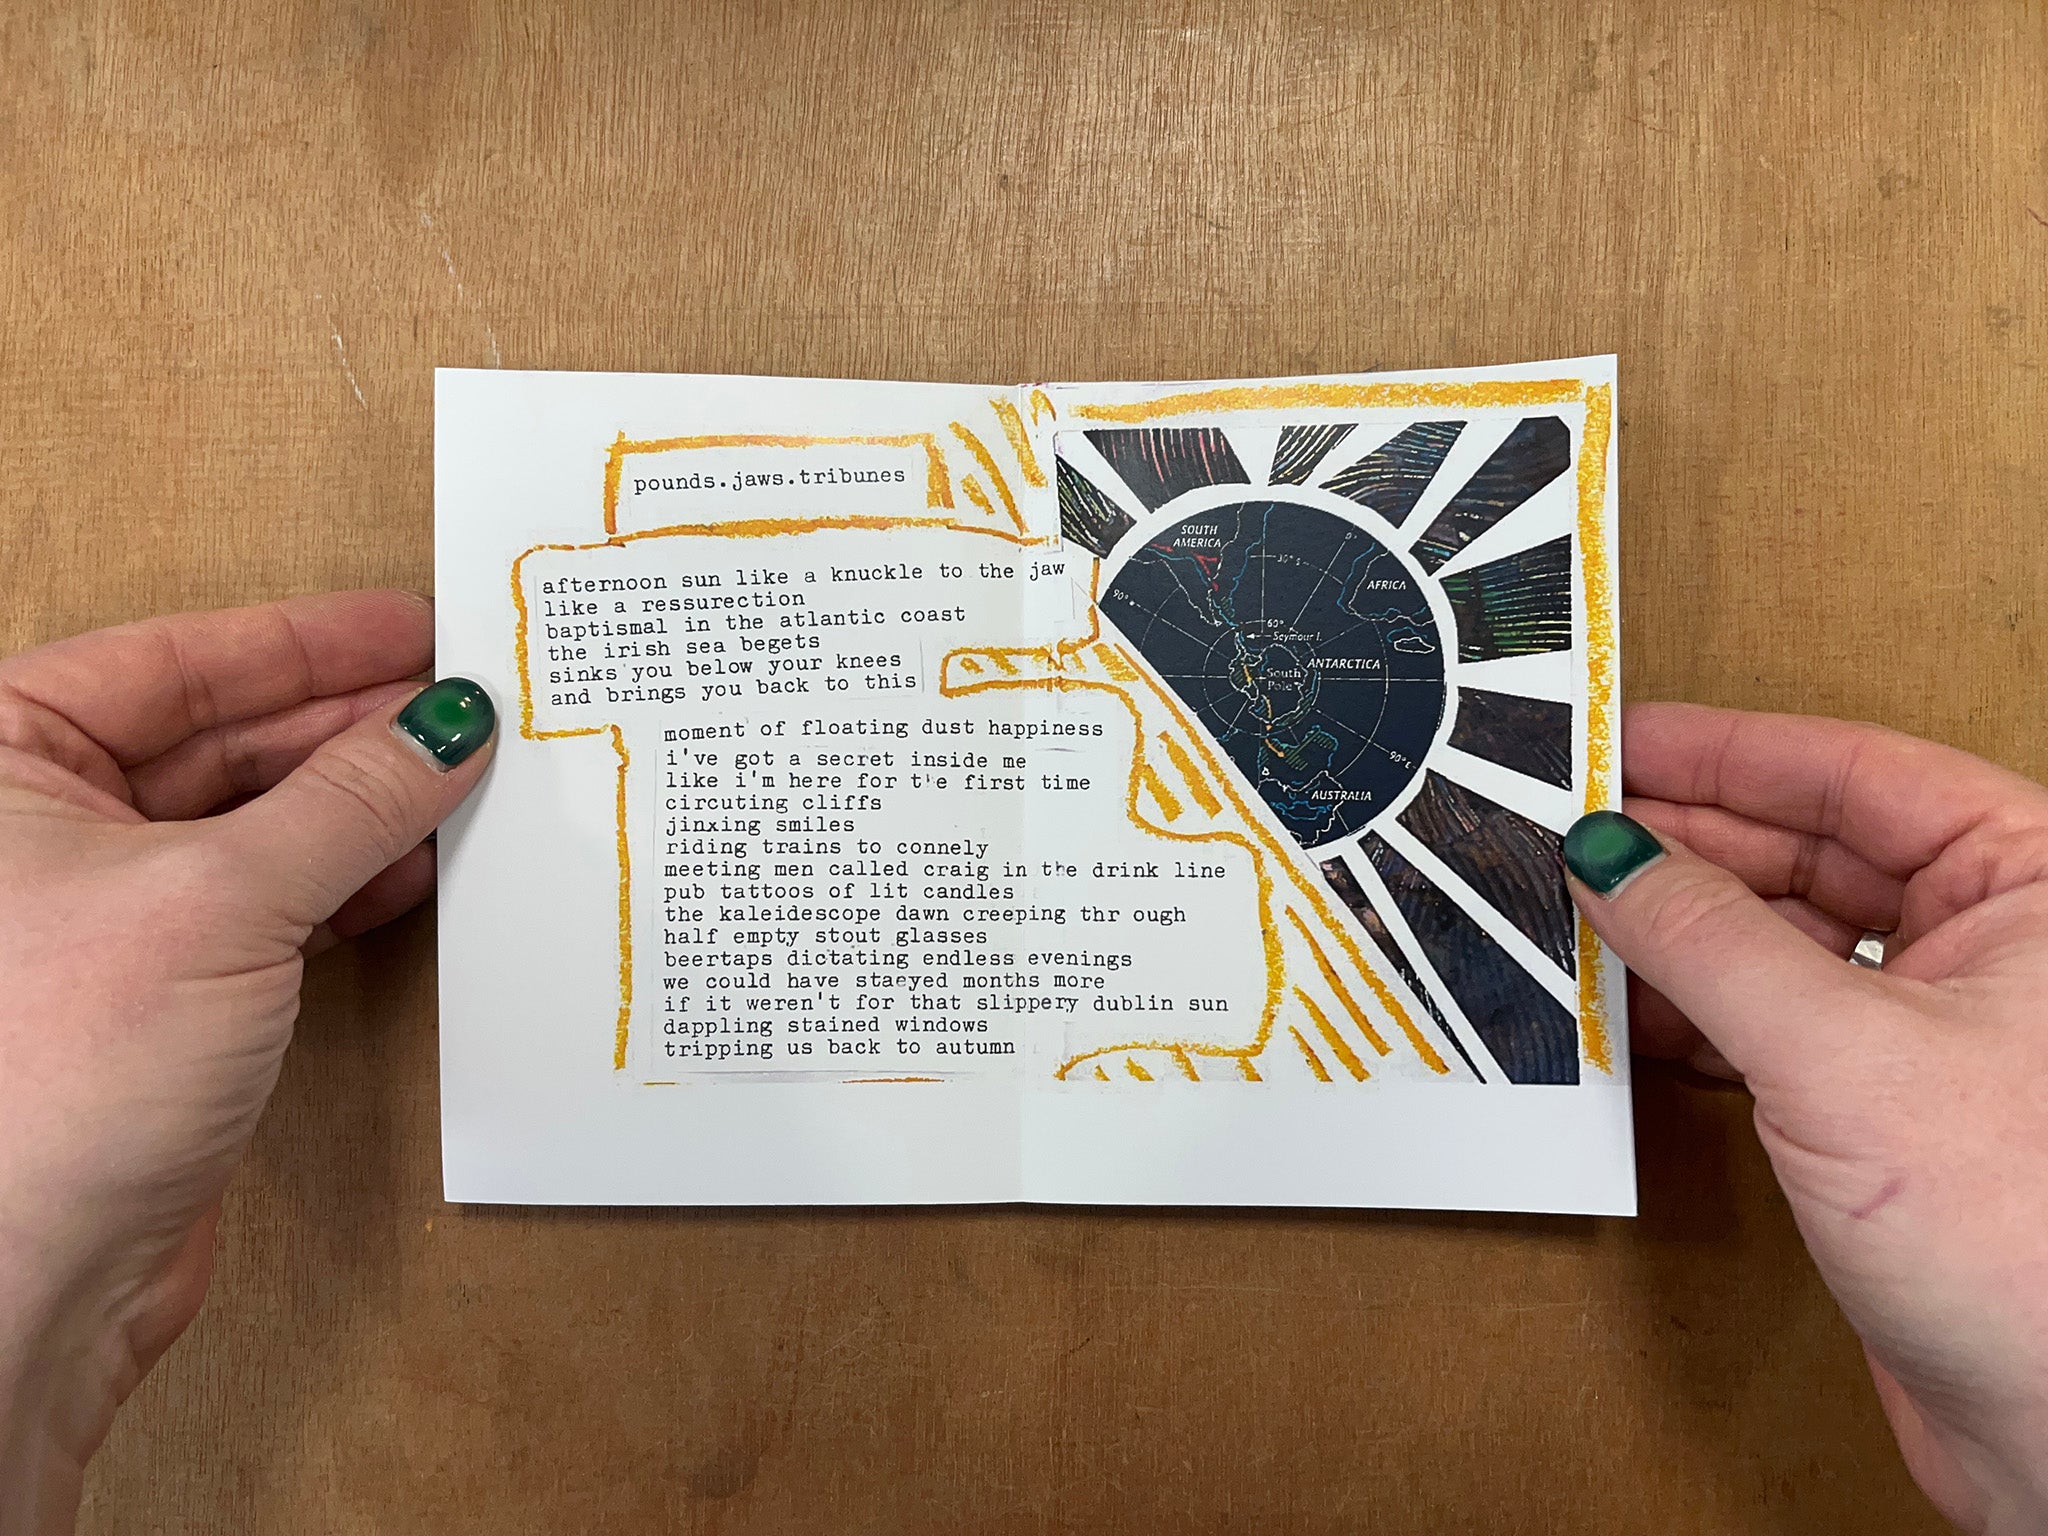 pounds.jaws.tribunes
afternoon sun like a knuckle to the jaw
like a ressurection
baptismal in the atlantic coast
the irish sea begets
sinks you below your knees
and brings you back to this
moment of floating dust happiness
i've got a secret inside me
like i'm here for the first time
circuting cliffs
jinxing smiles
riding trains to connely
meeting men called craig in the drink line
pub tattoos of lit candles
the kaleidescope dawn creeping thr ough
half empty stout glasses
beertaps dictating endless evenings
we could have staeyed months more
if it weren't for that slippery dublin sun
dappling stained windows
tripping us back to autumn
SOUTH
AMERICA
30° S
0°
AFRICA
90°
60°
Seymour I.
ANTARCTICA
South
Pole
90° E
AUSTRALIA